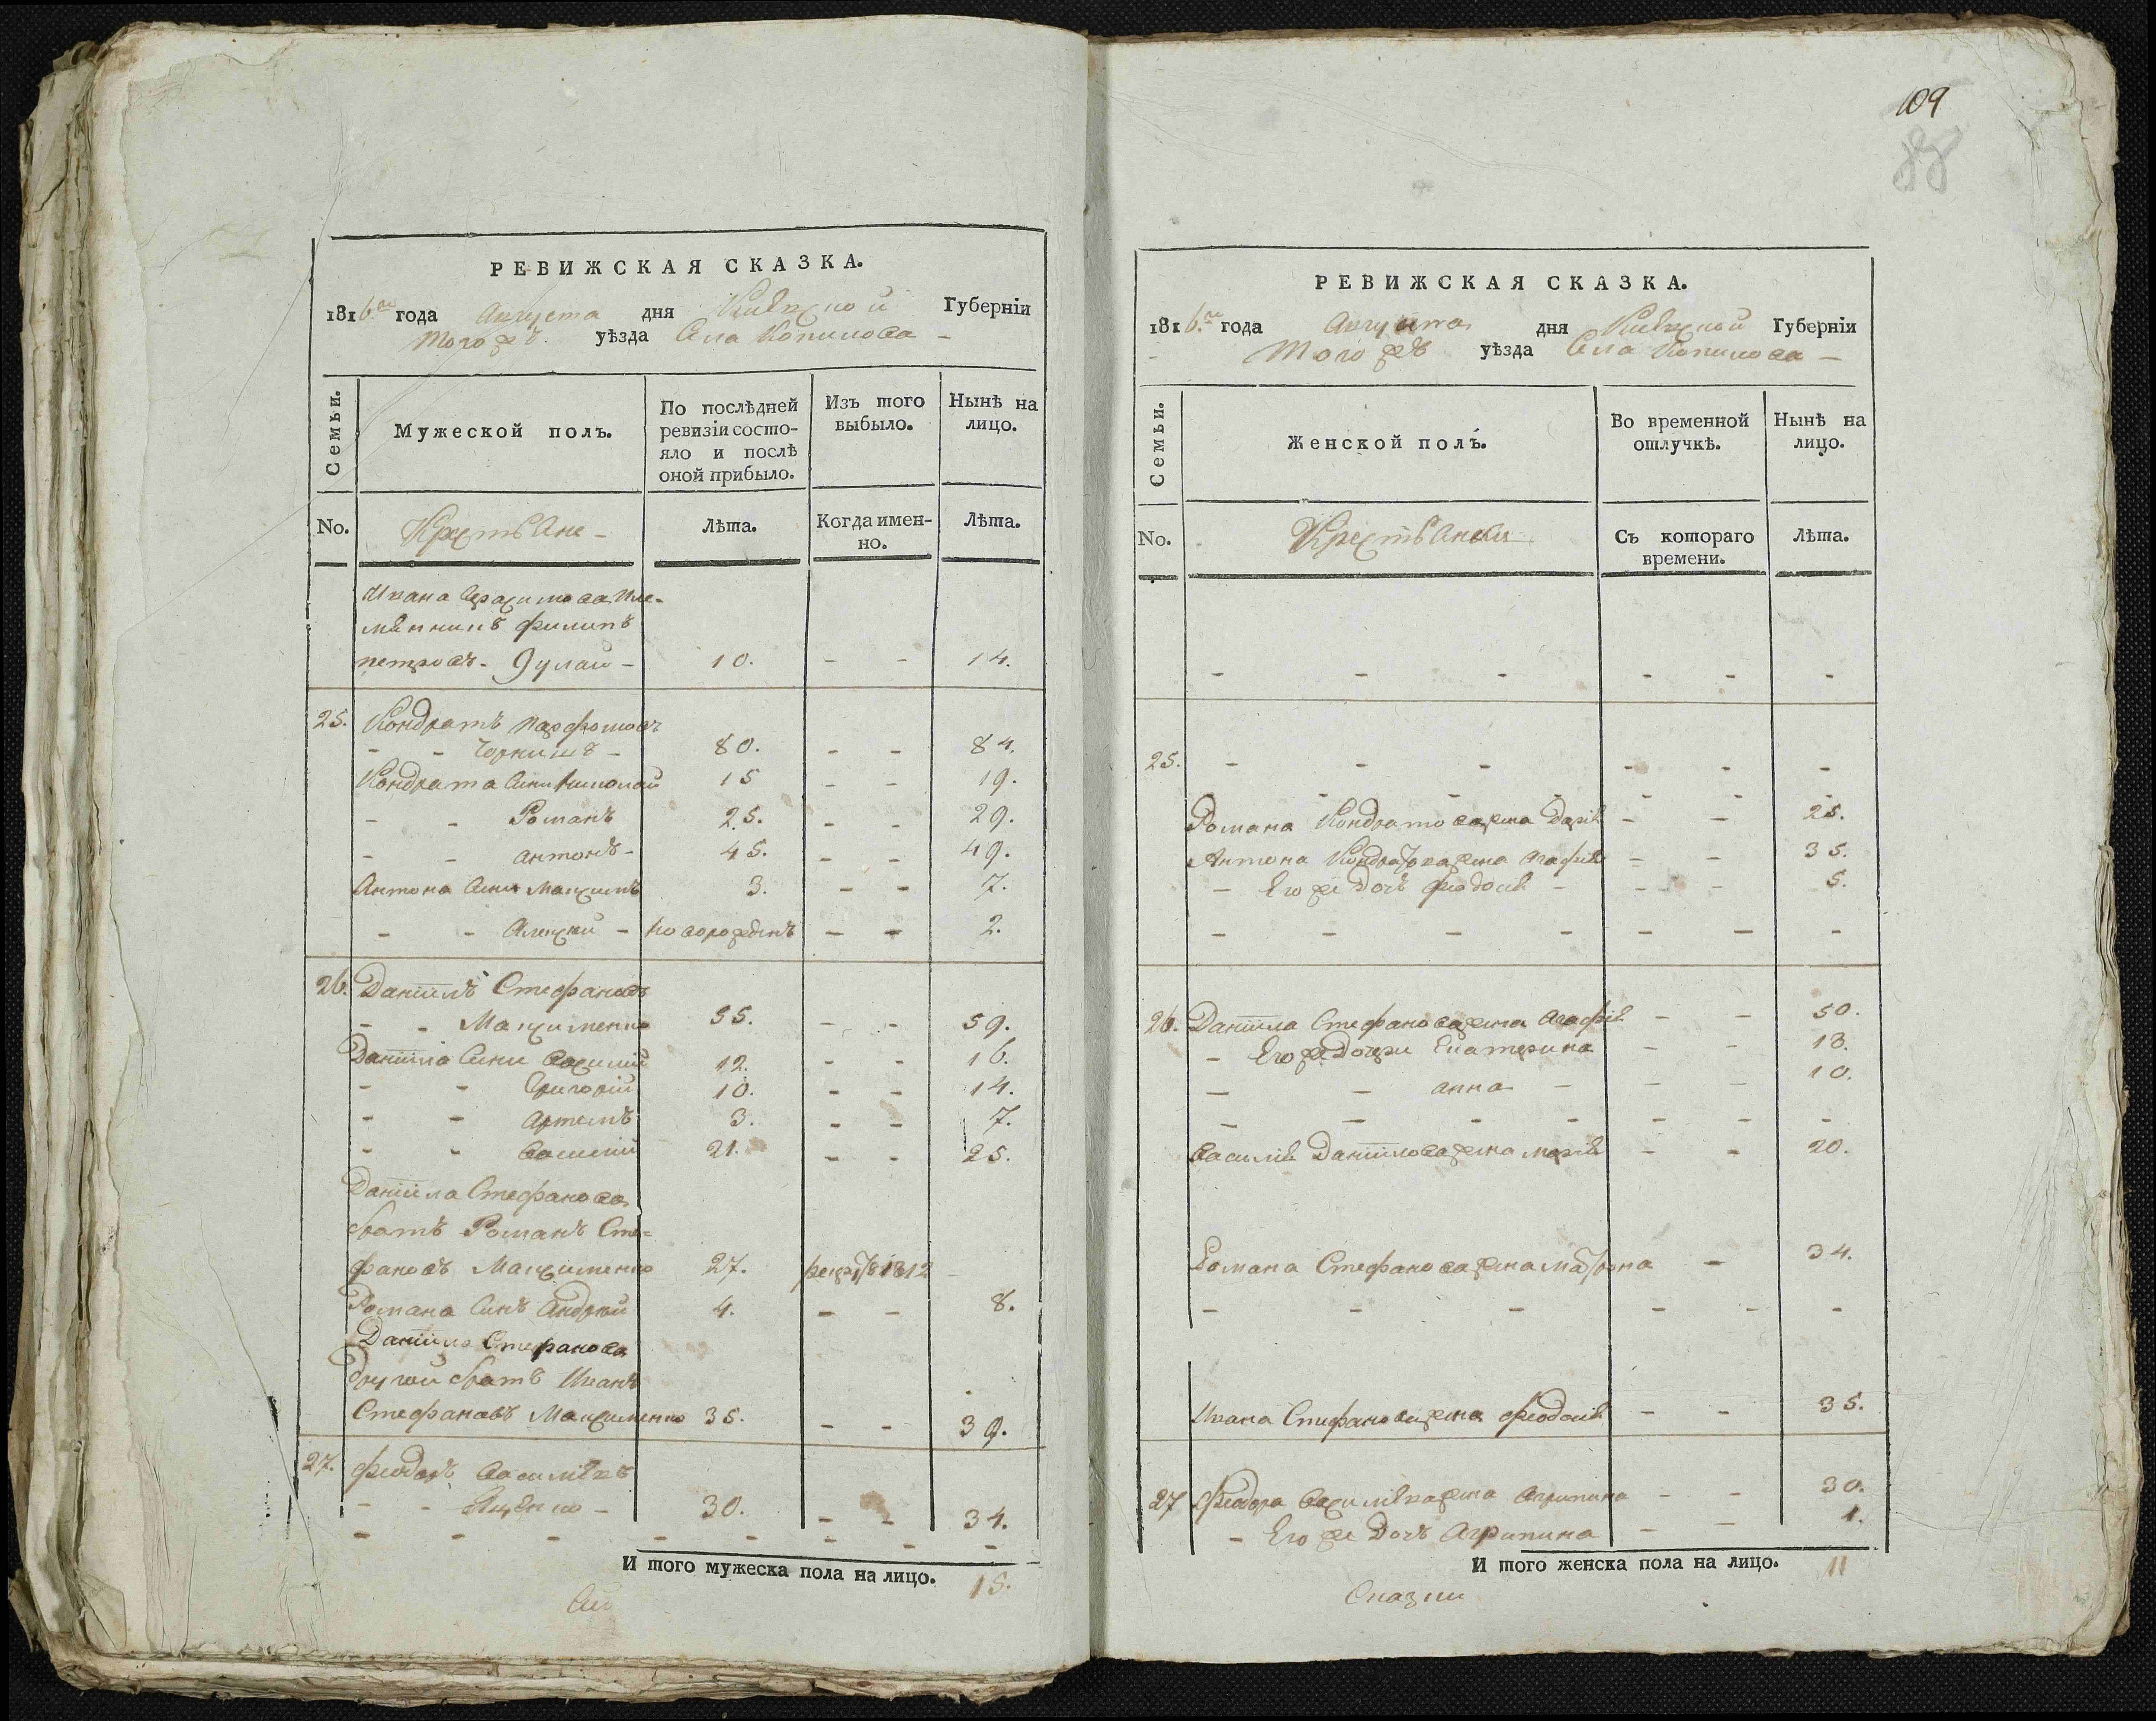 РЕВИЖСКАЯ СКАЗКА.
1816.го года Августа дня Киевской Губерніи
Того жъ уѣзда Села Копилова
Семьи.
Мужеской полъ.
По послѣдней ревизіи состо-
яло и послѣ
оной прибыло.
Изъ того
выбыло.
Нынѣ на
лицо.
No.
Крестьяне
Лѣта.
Когда имен-
но.
Лѣта.
Ивана Пле-
мѣнникъ Филипъ
петровъ 10. - - 14.
25. Кондратъ
80. - - 84.
Кондрата Сини Николай 15 - - 19.
- - Романъ 25. - - 29.
- - антонъ 45. - - 49.
Антона Сини Максимъ 3. - - 7.
- - Алексей - новорожденъ - - 2.
26. Даніилъ Стефановъ
- - Максименко 55. - - 59.
Даніила Сини Василій 12. - - 16.
- - Григорій 10. - - 14.
- - артемъ 3. - - 7.
- - Василій 21. - - 25.
Даніила Стефанова
братъ Романъ Сте-
фановъ Максименко 27. 1812
Романа Синъ Андрей 4. - - 8.
Даніила Стефанова
другой братъ Иванъ
Стефановъ Максименко 35. - - 39.
27. Феодоръ Василіевъ
30. - - 34.
И того мужеска пола на лицо. 15.
109
РЕВИЖСКАЯ СКАЗКА.
1816.го года Августа дня Киевской Губерніи
Того жъ уѣзда Села Копилова
Семьи.
Женской полъ.
Во временной
отлучкѣ.
Нынѣ на
лицо.
No.
Крестьянки
Съ котораго
времени.
Лѣта.
25.
Романа Кондратова жена Дарія - - 25.
Антона Кондратова жена Агафія - - 35.
- Его же Дочь Феодосія - - 5.
26. Даніила Стефанова жена Агафія - - 50.
- Его же Дочери Екатерина - - 13.
- - анна - - - 10.
Василія Даніилова жена марія - - 20.
Романа Стефанова жена матрона - 34.
Ивана Стефанова жена Феодосія - - 35.
27 Феодора Василіева жена Агрипина - - 30.
- Его же Дочь Агрипина - - 1.
И того женска пола на лицо. 11
Сказки